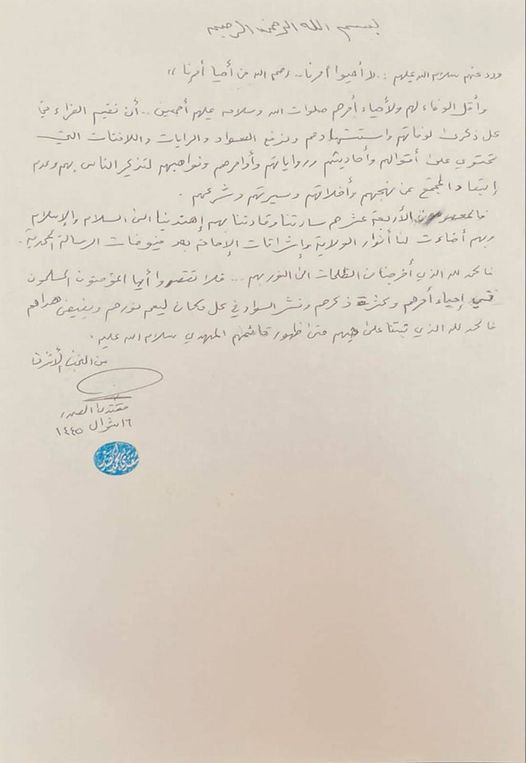 بسم الله الرحمن الرحيم
ورد عنهم سلام الله عليهم : .. لا أحيوا أمرنا .. رحم الله من أحيا أمرنا ))
وأقل الوفاء لهم ولأحياء أمرهم صلوات الله وسلامه عليهم أجمعين .. أن نقيم العزاء في
كل ذكرى لوفاتهم واستشهادهم ونرفع السواد والرايات واللافتات التي
تحتوي على أقوالهم وأحاديثهم ورواياتهم وأوامرهم ونواهيهم لتذكير الناس بهم وعدم
إبتعاد المجتمع عن نهجهم وأخلاقهم وسيرتهم وشرعهم .
فالمعصومون الأربعة عشر هم سادتنا وقادتنا بهم إهتدينا الى السلام والإسلام
وبهم أضاءت لنا أنوار الولاية وإشراقات الإمامة بعد فيوضات الرسالة المحمدية .
فالحمد لله الذي أخرجنا من الظلمات الى النور بهم ... فلا تقصروا أيها المؤمنون المسلمون
في إحياء أمرهم وكثرة ذكرهم ونشر السواد في كل مكان ليعم نورهم ويفيض هداهم
فالحمد لله الذي ثبتنا على حبهم حتى ظهور قائمهم المهدي سلام الله عليه .
من النجف الأشرف
مقتدى الصدر
١٦ شوال ١٤٤٥